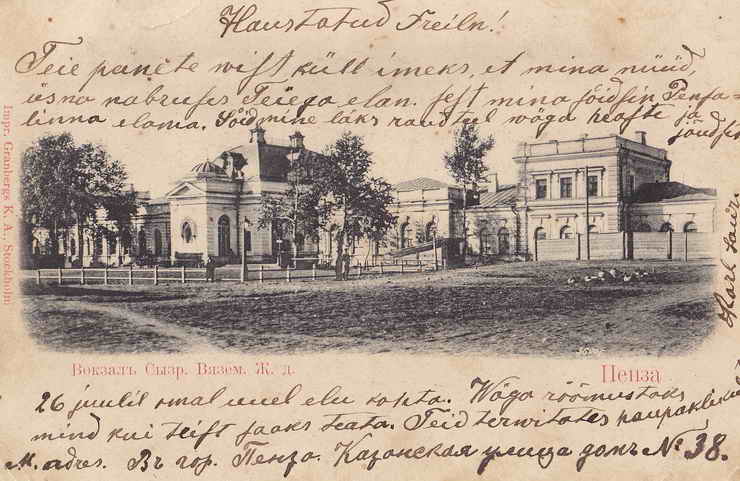 Haustatud Freiln!
Teie panete wist küll imeks, et mina nüüd,
üsna nabruses Teiega elan. sest mina jõidsin Penſa=
linna elama. Sõidmine läks raudteel wäga heaste ja
jõudsin
Impr. Granbergs K. A., Stockholm
Karl
Вокзалъ Сызр. Вязем. Ж. д.
Пенза
26 juulil omal uuel elu kohta. Wäga rõõmustaks
mind kui teist jaaks teata. Teid terwitates
M. adres. Въ гор. Пенза. Казанская улица домъ № 38.